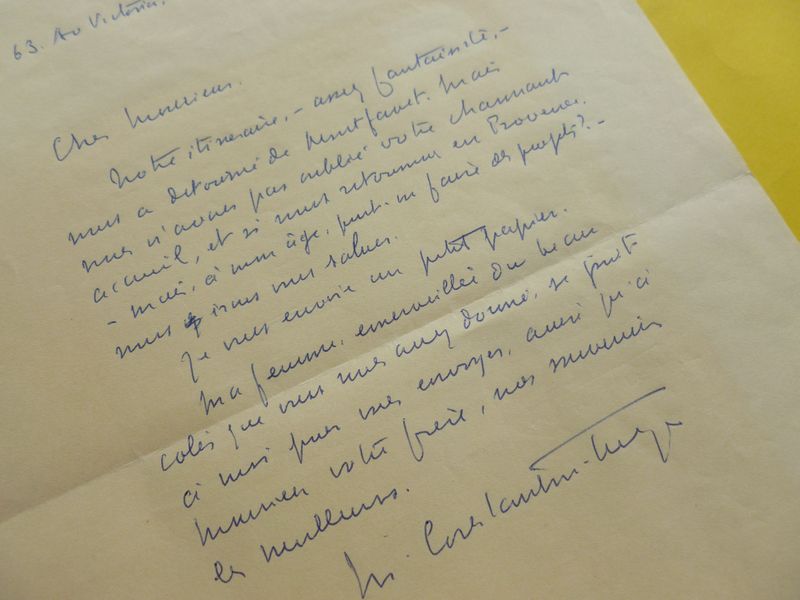 63. Av Victoria.
Cher Monsieur.
Notre itinéraire, - assez fantaisiste, -
nous a détourné de Montfavet. Mais
nous n'avons pas oublié votre charmant
accueil, et si nous retournons en Provence.
- mais, à mon âge, peut-on faire des projets? -
nous irons vous saluer.
Je vous envoie un petit papier.
Ma femme, émerveillée du beau
colis que vous nous avez donné, se joint
à moi pour vous envoyer, ainsi qu'à
Monsieur votre frère, nos souvenirs
les meilleurs.
M. Constantin-Weyer